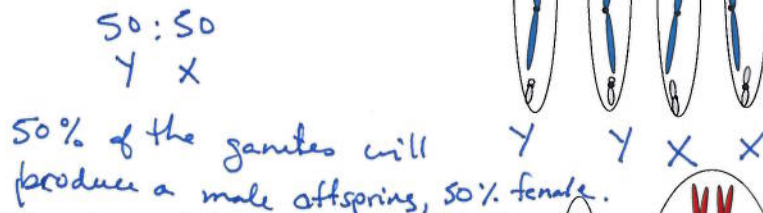 50:50
Y X
Y Y X X
50% of the gametes will
produce a male offspring, 50% female.